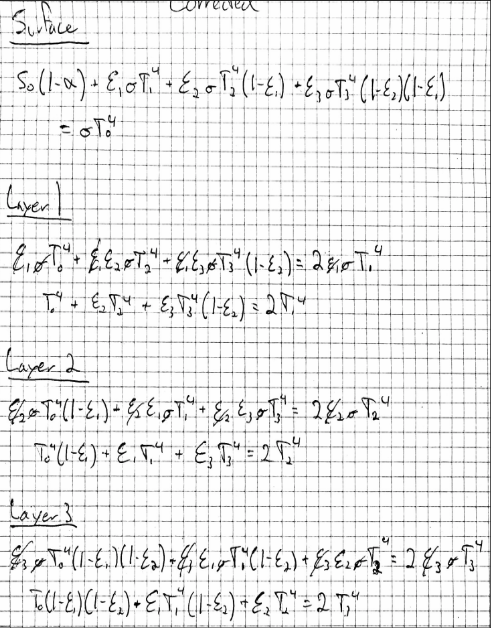 Corrected
Surface
S₀(1-α) + ε₁σT₁⁴ + ε₂σT₂⁴(1-ε₁) + ε₃σT₃⁴(1-ε₂)(1-ε₁)
= σT₀⁴
Layer 1
ε₁σT₀⁴ + ε₁ε₂σT₂⁴ + ε₁ε₃σT₃⁴(1-ε₂) = 2ε₁σT₁⁴
T₀⁴ + ε₂T₂⁴ + ε₃T₃⁴(1-ε₂) = 2T₁⁴
Layer 2
ε₂σT₀⁴(1-ε₁) + ε₂ε₁σT₁⁴ + ε₂ε₃σT₃⁴ = 2ε₂σT₂⁴
T₀⁴(1-ε₁) + ε₁T₁⁴ + ε₃T₃⁴ = 2T₂⁴
Layer 3
ε₃σT₀⁴(1-ε₁)(1-ε₂) + ε₃ε₁σT₁⁴(1-ε₂) + ε₃ε₂σT₂⁴ = 2ε₃σT₃⁴
T₀(1-ε₁)(1-ε₂) + ε₁T₁⁴(1-ε₂) + ε₂T₂⁴ = 2T₃⁴